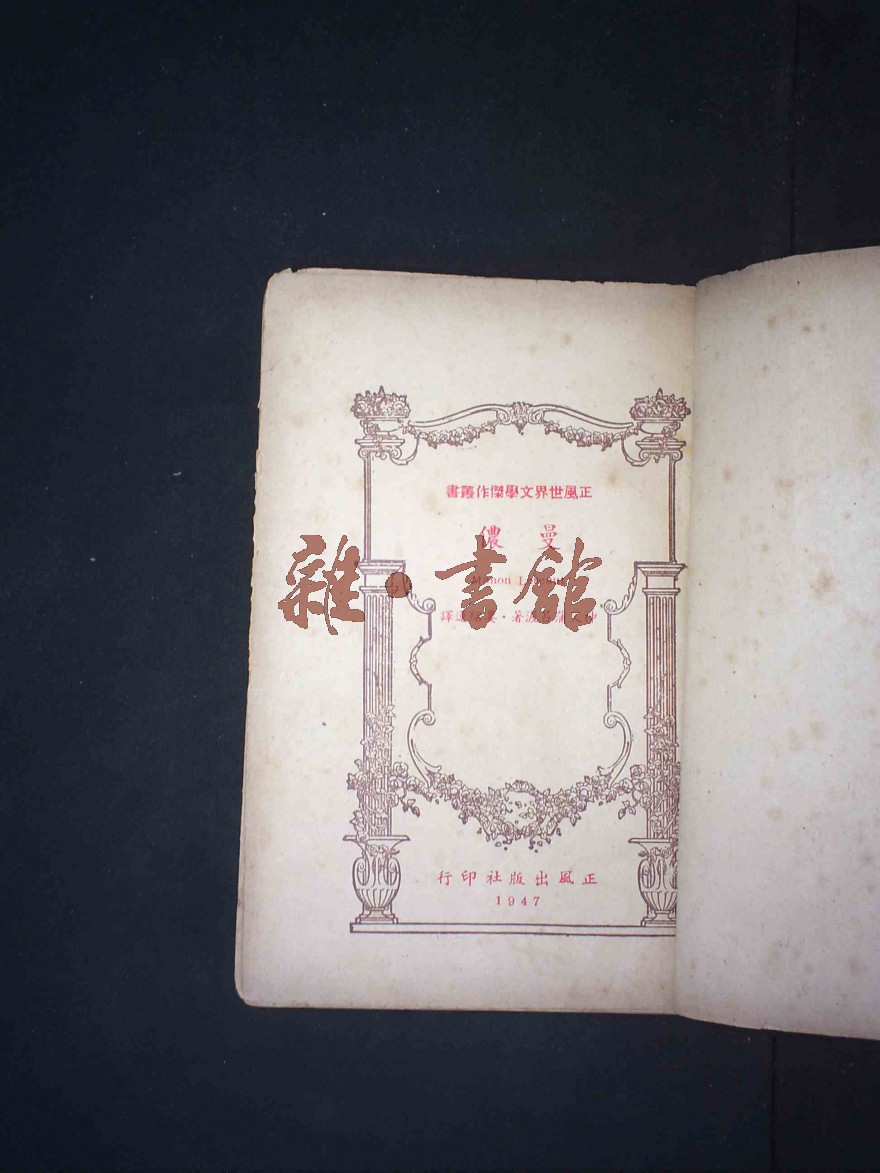 正風世界文學傑作叢書
曼儂
Manon
著·譯
雜·書館
正風出版社印行
1947